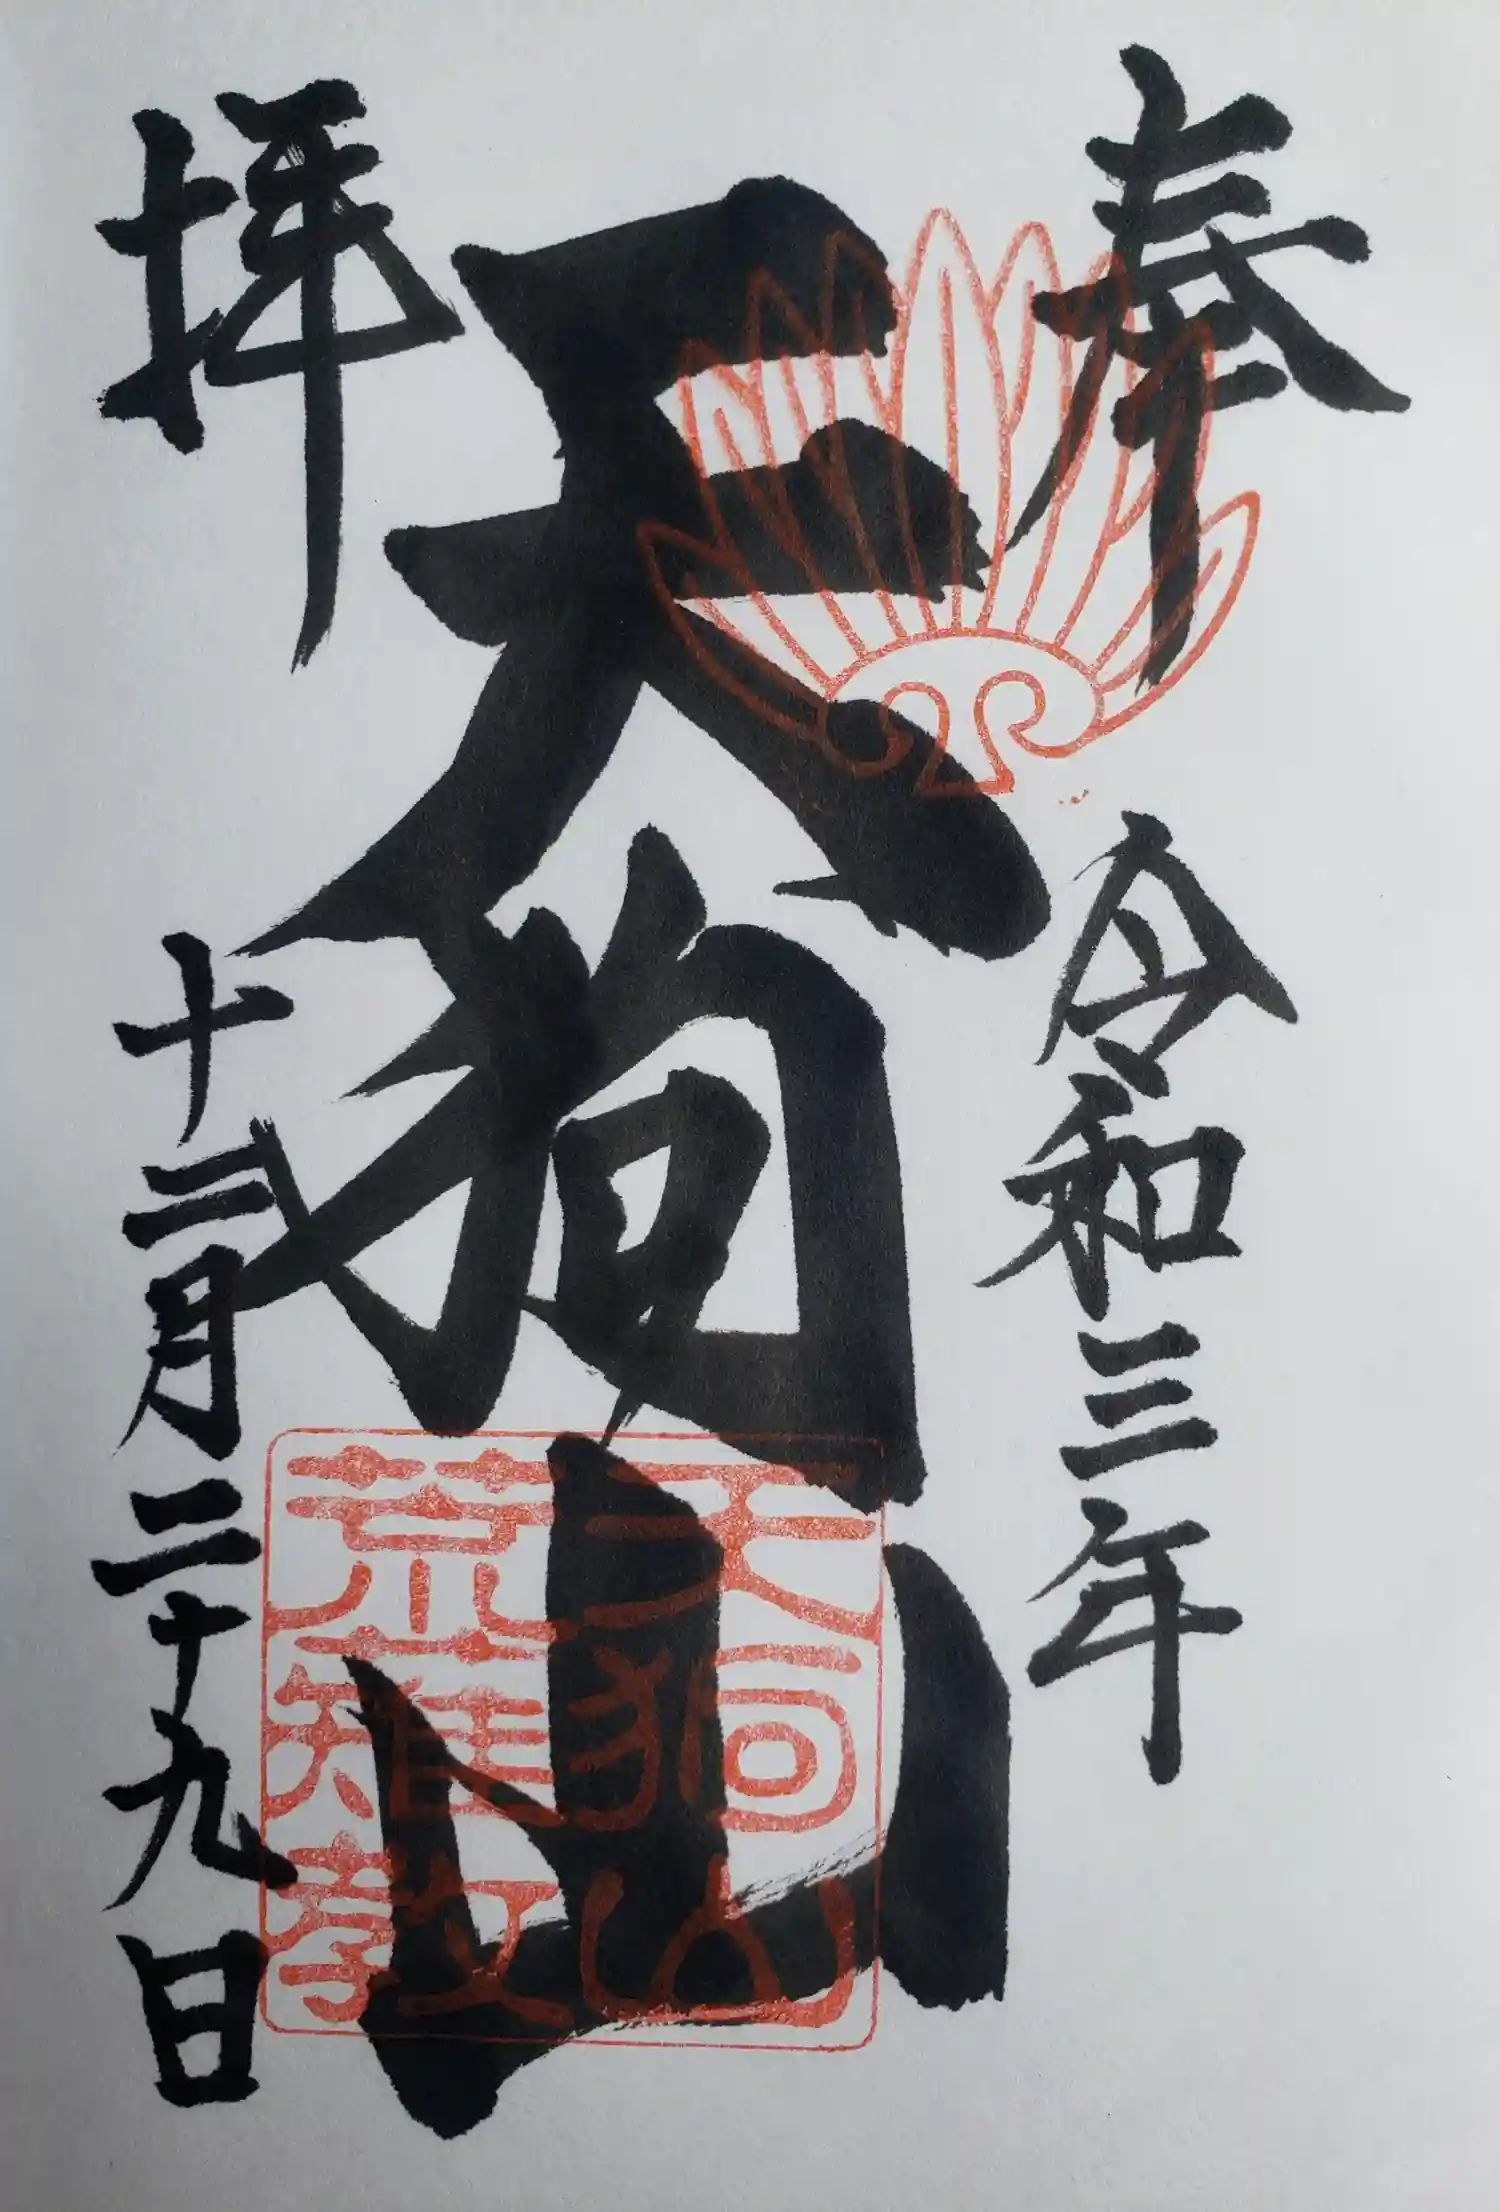 奉拝
天狗山
令和三年
十弍月二十九日
天狗山
荒薙教